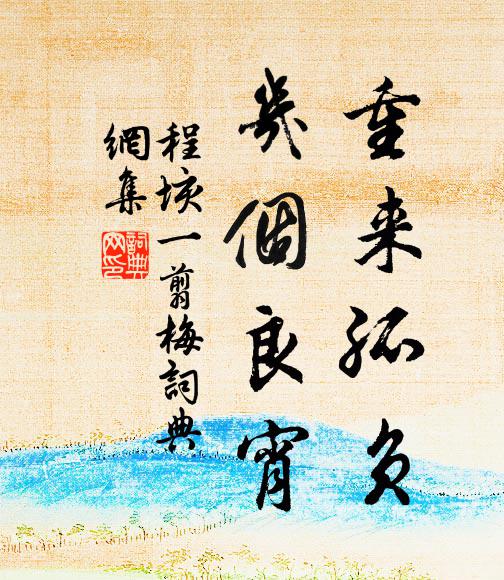 重来孤负
幾個良宵
程垓一剪梅詞典
網集
詞典
网印